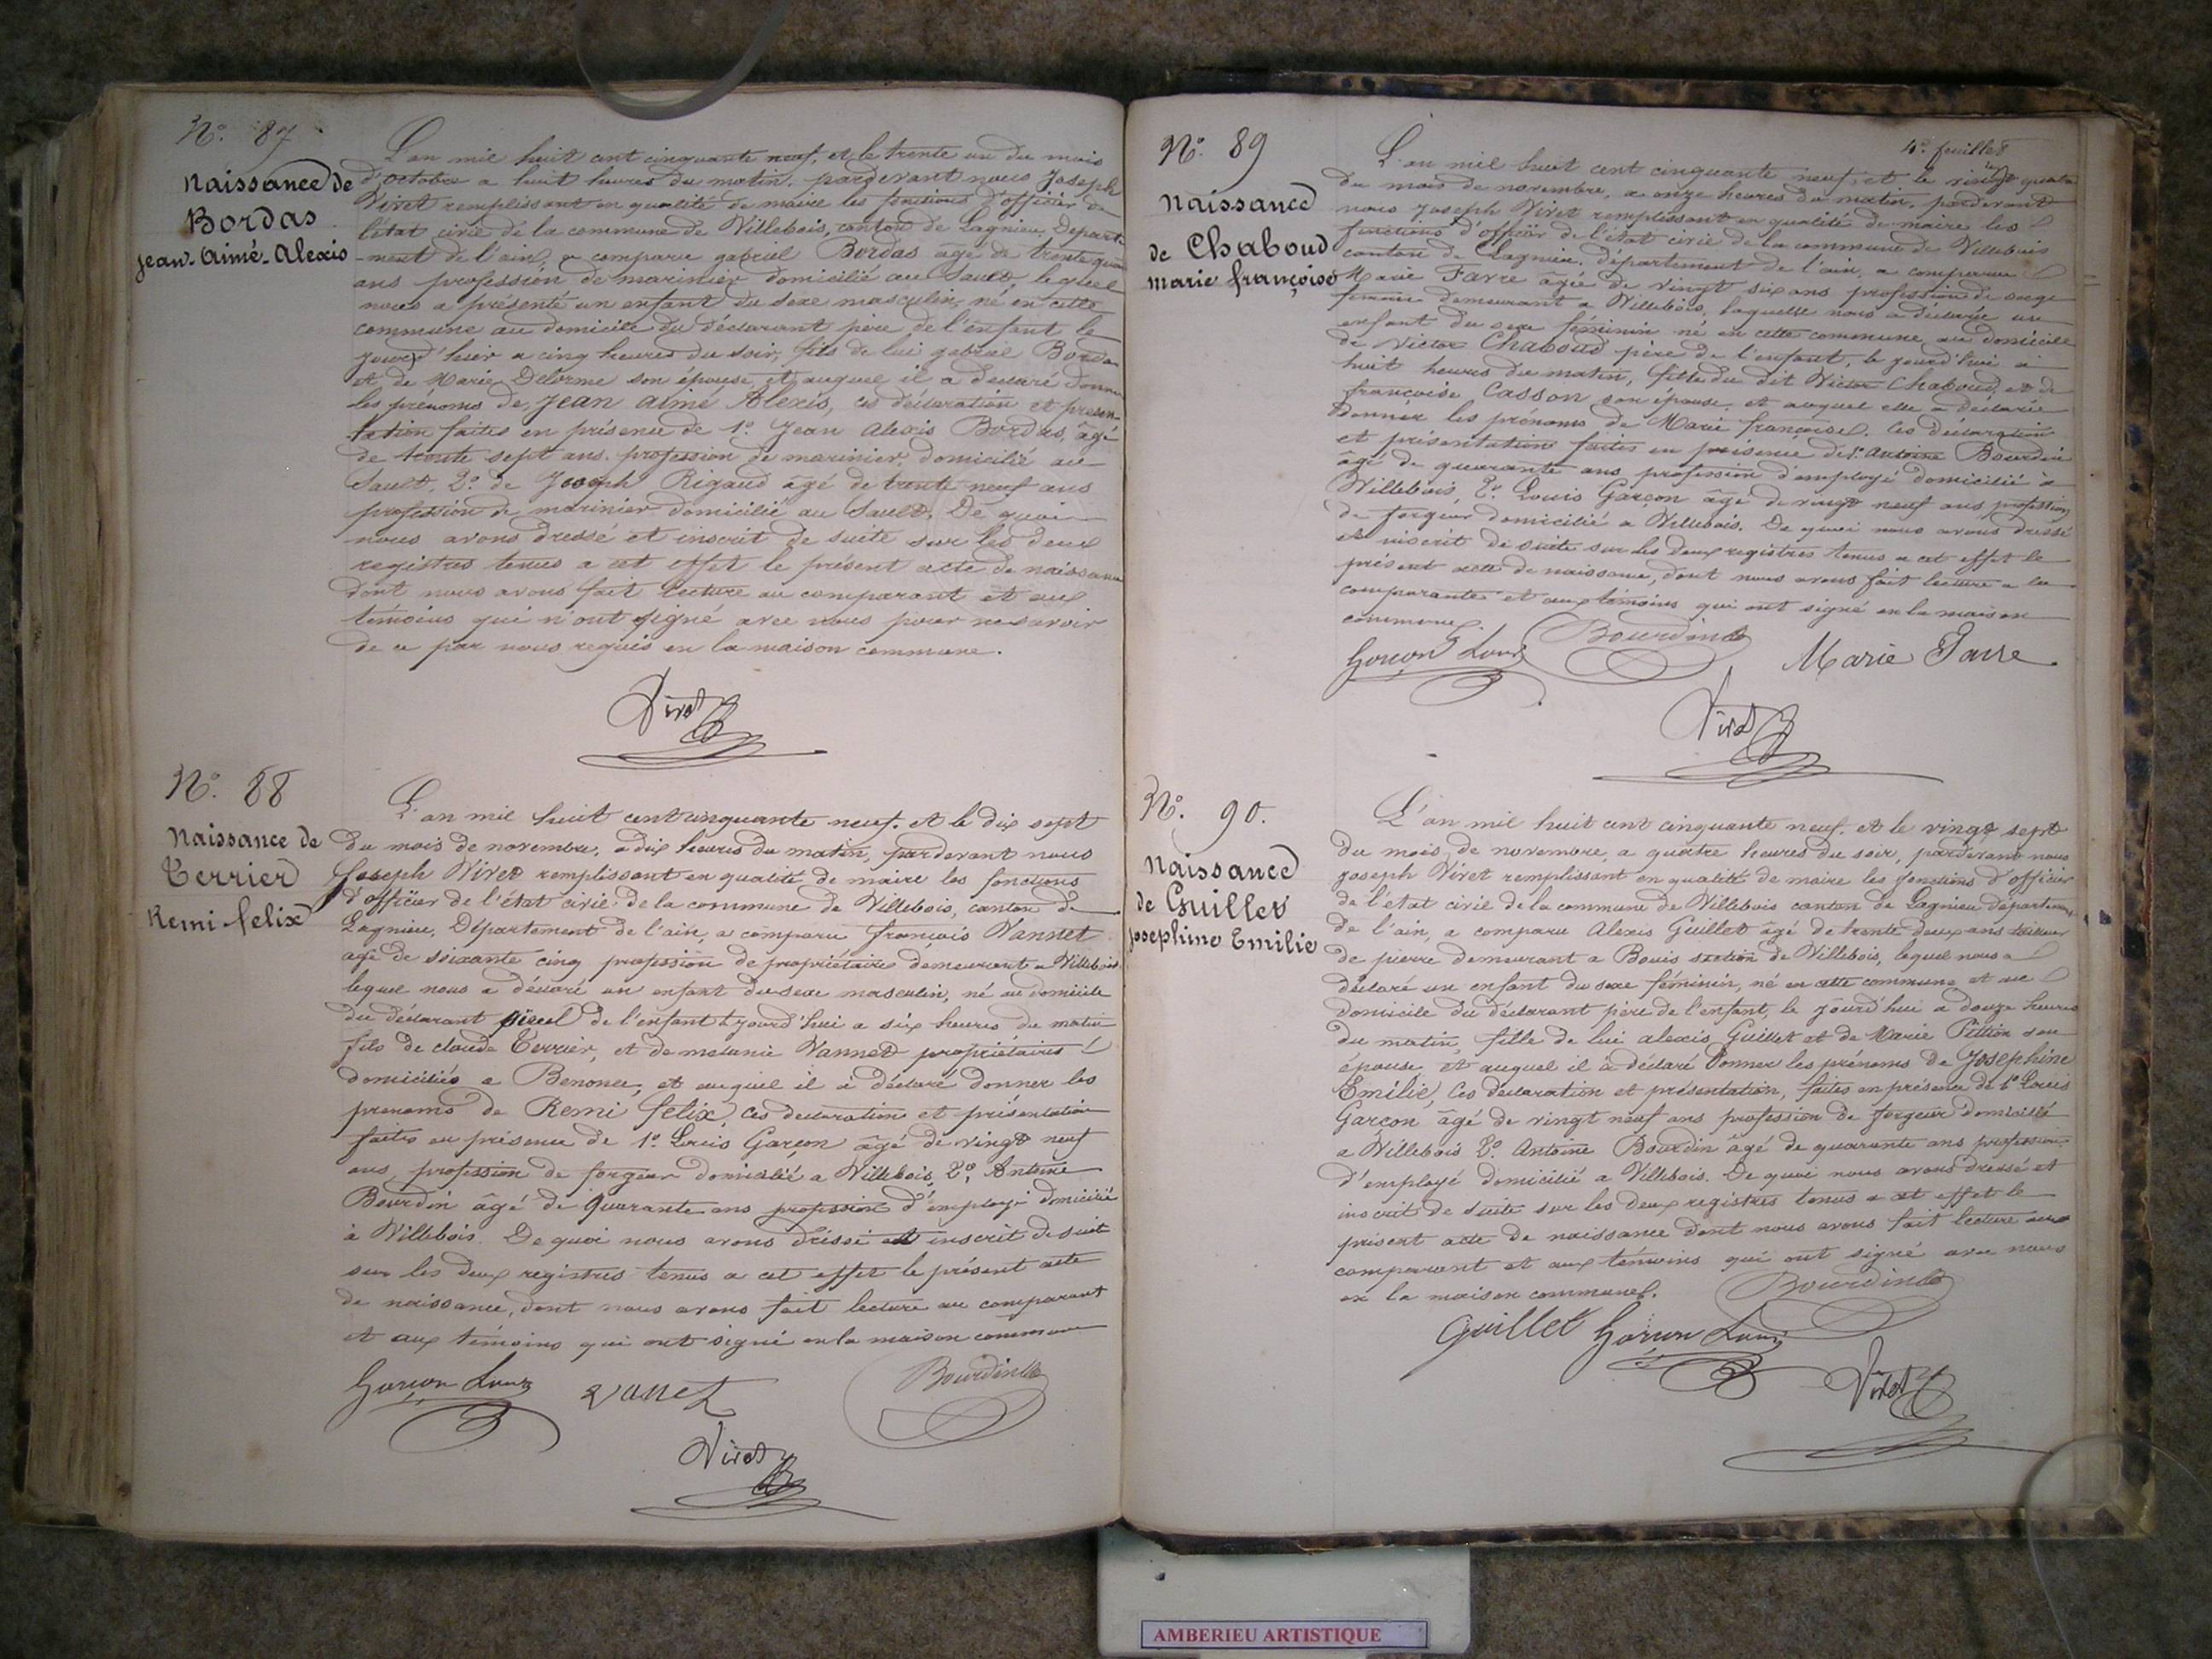 No. 87
Naissance de
Bordas
Jean-Aimé-Alexis
L'an mil huit cent cinquante neuf, et le trente un du mois
d'octobre a huit heures du matin, pardevant nous Joseph
Viret remplissant en qualité de maire les fonctions d'officier de
l'état civil de la commune de Villebois, canton de Lagnieu, Départe-
-ment de l'ain, a comparu gabriel Bordas âgé de trente quatre
ans profession de marinier domicilié au Sault, lequel
nous a présenté un enfant du sexe masculin, né en cette
commune au domicile du déclarant père de l'enfant le
jourd'hier a cinq heures du soir, fils de lui gabriel Bordas
et de Marie Delorme son épouse, et auquel il a déclaré donner
les prénoms de Jean aimé Alexis, ces déclaration et présen-
tation faites en présence de 1o. Jean Alexis Bordas, âgé
de trente sept ans profession de marinier, domicilié au
Sault, 2o. de Joseph Rigaud âgé de trente neuf ans
profession de marinier domicilié au Sault. De quoi
nous avons dressé et inscrit de suite sur les deux
registres tenus a cet effet le présent acte de naissance
dont nous avons fait lecture au comparant et aux
témoins qui n'ont signé avec nous pour ne savoir
de ce par nous requis en la maison commune.
Viret
No. 88
Naissance de
Terrier
Remi felix
L'an mil huit cent cinquante neuf. et le dix sept
du mois de novembre, a dix heures du matin, pardevant nous
Joseph Viret remplissant en qualité de maire les fonctions
d'officier de l'état civil de la commune de Villebois, canton de
Lagnieu, Département de l'ain, a comparu françois Vannet
agé de soixante cinq profession de propriétaire demeurant a Villebois
lequel nous a déclaré un enfant du sexe masculin, né au domicile
du déclarant aïeul de l'enfant le jourd'hui a six heures du matin
fils de claude Terrier, et de melanie Vannet propriétaires
domiciliés a Benonce, et auquel il a déclaré donner les
prenoms de Remi felix, ces déclaration et présentation
faites en présence de 1o. Louis Garçon âgé de vingt neuf
ans profession de forgeur domicilié a Villebois, 2o. Antoine
Bourdin âgé de quarante ans profession d'employé domicilié
à Villebois. De quoi nous avons dressé et inscrit de suite
sur les deux registres tenus a cet effet le présent acte
de naissance, dont nous avons fait lecture au comparant
et aux témoins qui ont signé en la maison commune
Garçon Louis Vanet Bourdin
Viret
4e. feuillet
No. 89
Naissance
de Chaboud
Marie françoise
L'an mil huit cent cinquante neuf, et le vingt quatre
du mois de novembre, a onze heures du matin, pardevant
nous Joseph Viret remplissant en qualité de maire les
fonctions d'officier de l'état civil de la commune de Villebois
canton de Lagnieu, département de l'ain, a comparu
Marie Favre âgée de vingt six ans profession de sage
femme demeurant a Villebois, laquelle nous a déclaré un
enfant du sexe féminin né en cette commune, au domicile
de Victor Chaboud père de l'enfant, le jourd'hui à
huit heures du matin, fille du dit Victor Chaboud, et de
françoise Casson son épouse et auquel elle a déclarée
donner les prénoms de Marie françoise. Ces déclaration
et présentation faites en présence de 1o. Antoine Bourdin
âgé de quarante ans, profession d'employé domicilié à
Villebois, 2o. Louis Garçon âgé de vingt neuf ans profession
de forgeur domicilié a Villebois. De quoi nous avons dressé
et inscrit de suite sur les deux registres tenus a cet effet le
présent acte de naissance, dont nous avons fait lecture a la
comparante et aux témoins qui ont signé en la maison
commune.
Garçon Louis Bourdin Marie Favre
Viret
No. 90.
Naissance
de Guillet
Josephine Emilie
L'an mil huit cent cinquante neuf. et le vingt sept
du mois de novembre, a quatre heures du soir, pardevant nous
Joseph Viret remplissant en qualité de maire les fonctions d'officier
de l'état civil de la commune de Villebois canton de Lagnieu département
de l'ain, a comparu Alexis Guillet âgé de trente deux ans tailleur
de pierre demeurant a Bouis section de Villebois, lequel nous a
déclaré un enfant du sexe féminin, né en cette commune et au
domicile du déclarant père de l'enfant, le jourd'hui a douze heures
du matin, fille de lui alexis Guillet et de Marie Pittion son
épouse, et auquel il a déclaré donner les prénoms de Josephine
Emilie, Ces déclaration et présentation, faites en présence de 1o Louis
Garçon âgé de vingt neuf ans profession de forgeur domicilié
a Villebois 2o. Antoine Bourdin âgé de quarante ans profession
d'employé domicilié a Villebois. De quoi nous avons dressé et
inscrit de suite sur les deux registres tenus a cet effet le
présent acte de naissance dont nous avons fait lecture au
comparant et aux témoins qui ont signé avec nous
en la maison commune.
Bourdin
Guillet Garçon Louis
Viret
AMBERIEU ARTISTIQUE